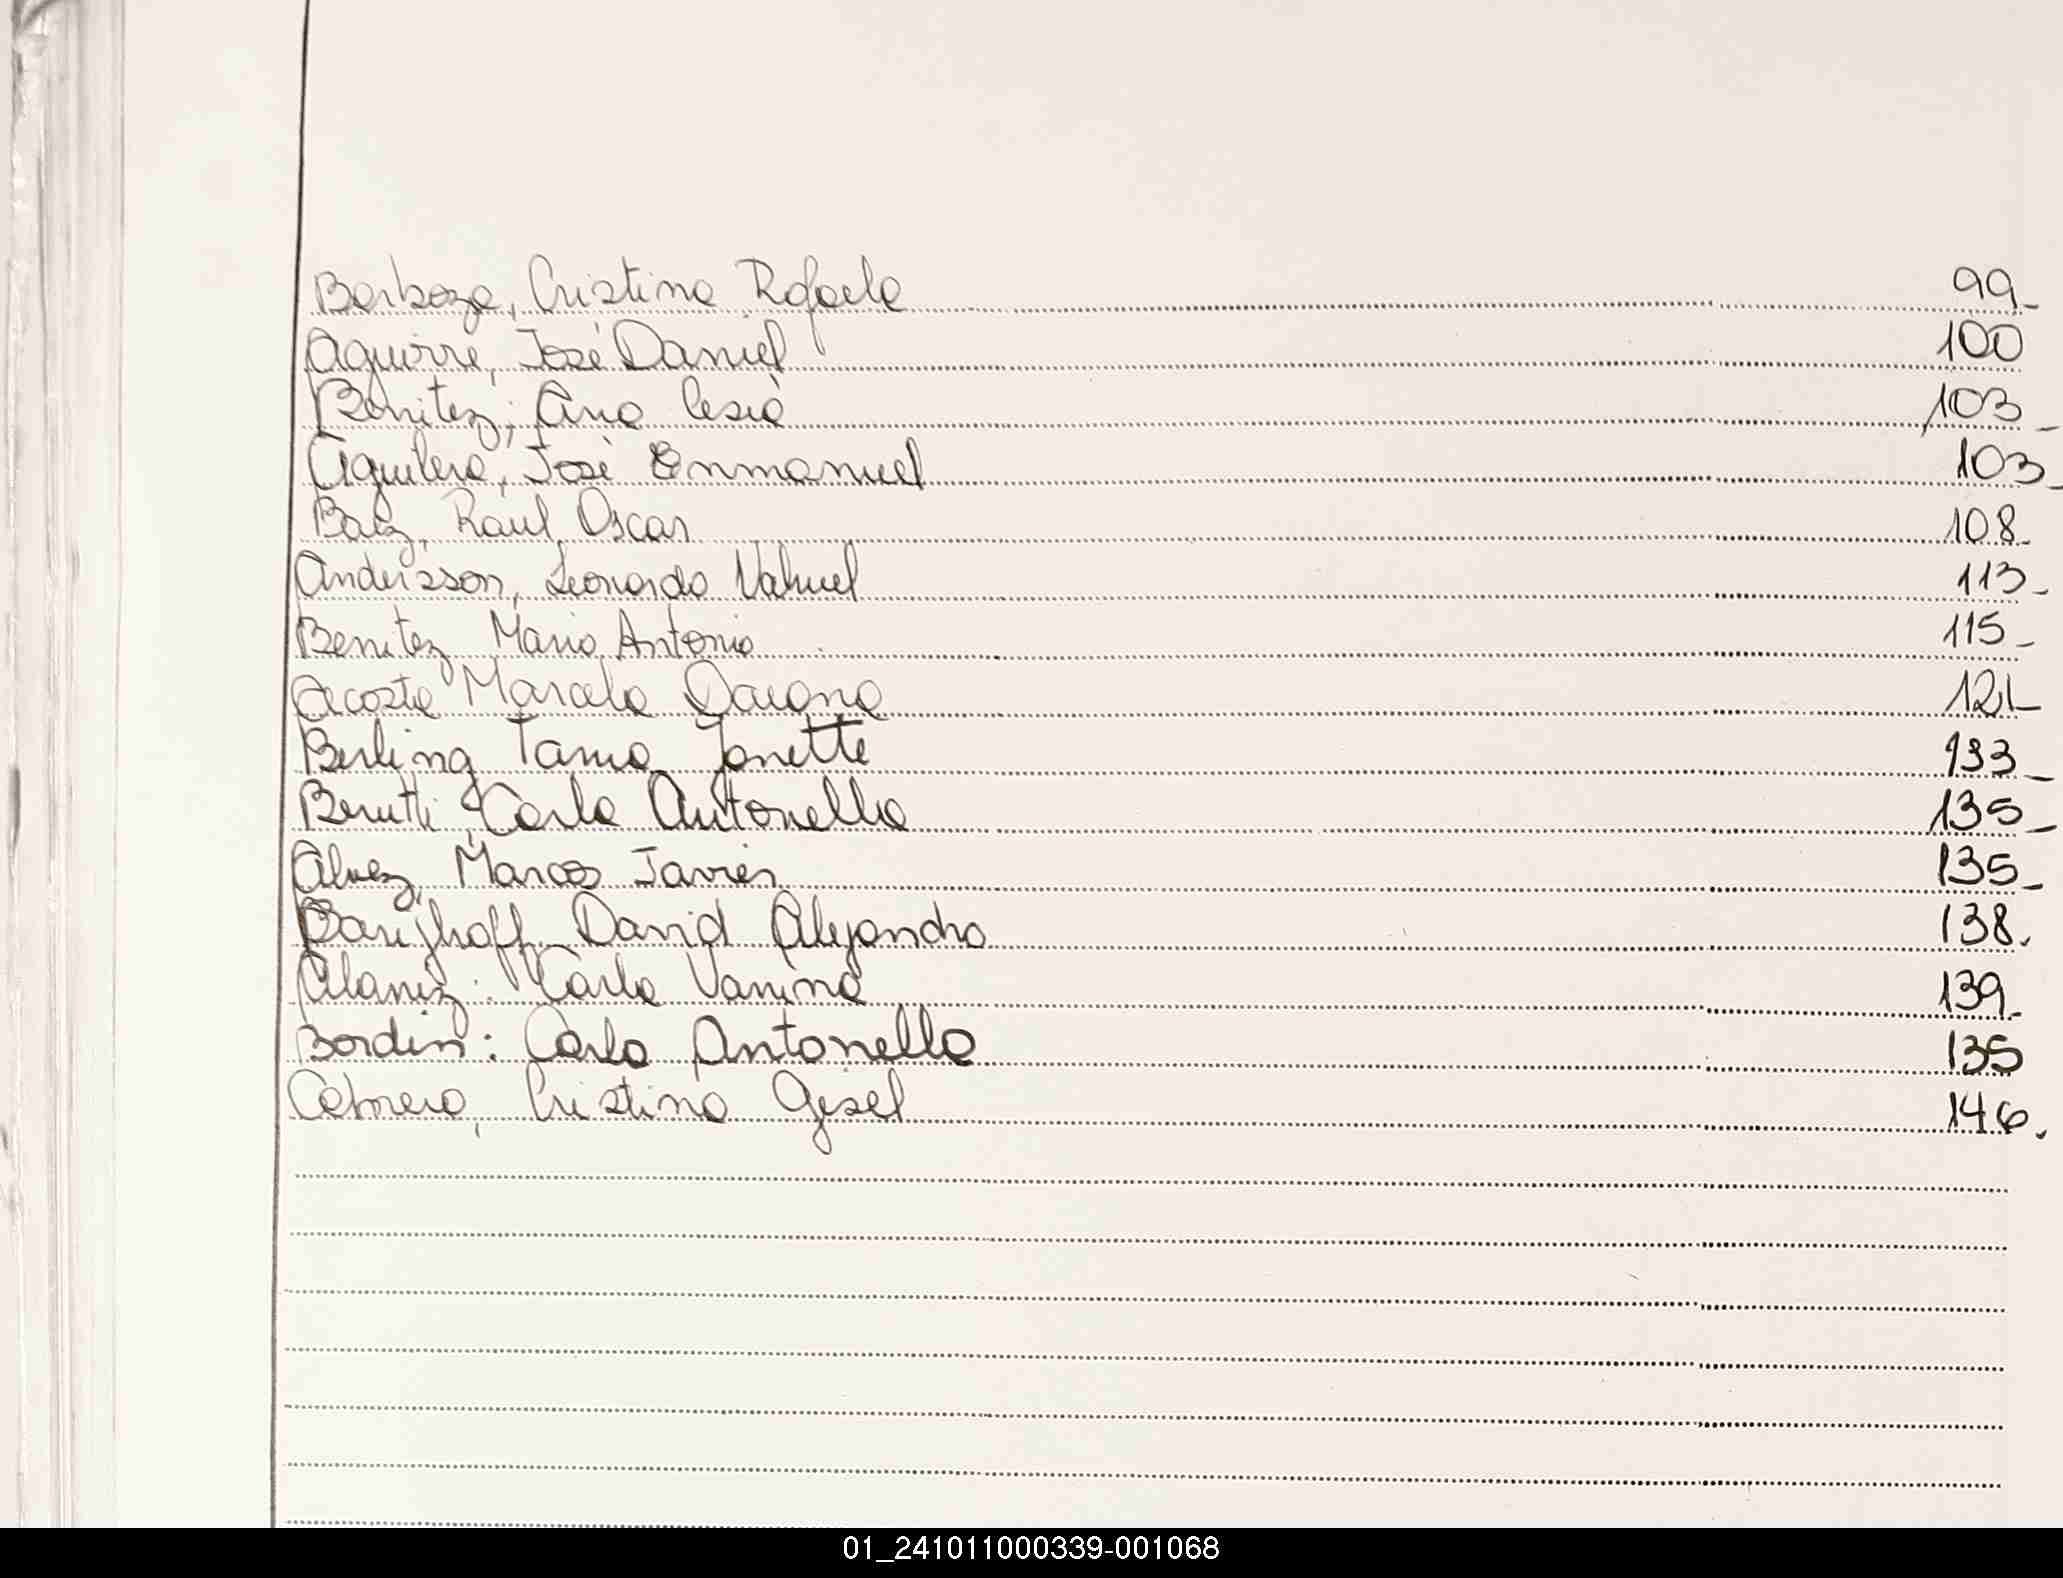 Barboza, Cristina Rafaela 99-
Aguirre, José Daniel 100
Benitez; Ana 103-
Aguilera, José Emmanuel 103-
Baez, Raul Oscar 108-
Andersson, Leonardo Nahuel 113-
Benitez Mario Antonio 115-
Acosta Marcela Daiana 121-
Berling Tania Janette 133-
Berutti, Carla Antonella 135-
Alvez, Marcos Javier 135-
David Alejandro 138.
Alaniz: Carla Vanina 139-
Bordin: Carla Antonella 135
Cabrera, Cristina Gisel 146.
01_241011000339-001068